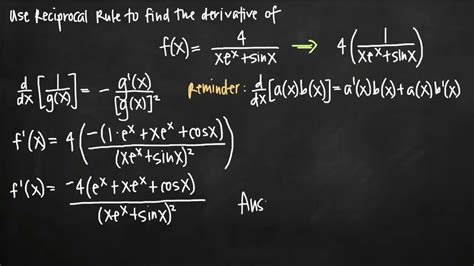 Use Reciprocal Rule to find the derivative of
f(x) = 4/(xeˣ+sinx) → 4(1/(xeˣ+sinx))
d/dx [1/g(x)] = - g'(x)/[g(x)]²
Reminder: d/dx [a(x)b(x)] = a'(x)b(x) + a(x)b'(x)
f'(x) = 4(-(1·eˣ + xeˣ + cosx)/(xeˣ+sinx)²)
f'(x) = -4(eˣ + xeˣ + cosx)/(xeˣ+sinx)²
Ans